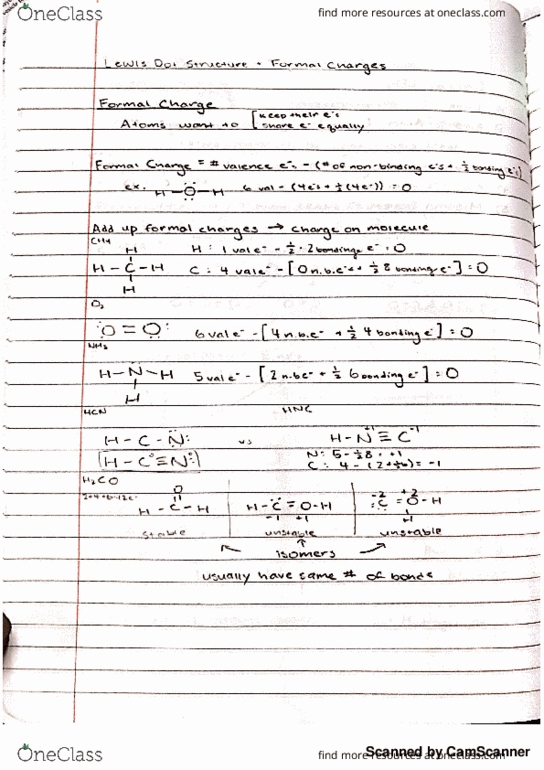 OneClass
find more resources at oneclass.com
Lewis Dot Structure - Formal Charges
Formal Charge
Atoms want to [keep their e⁻s
share e⁻ equally
Formal Charge = # valence e⁻s - (# of non-binding e⁻s + ½ bonding e⁻s)
ex. H-Ö-H 6 val - (4e⁻s + ½(4e⁻)) = 0
Add up formal charges → charge on molecule
CH4
H
H : 1 val e⁻ - ½ · 2 bonding e⁻ = 0
H - C - H C : 4 val e⁻ - [0 n.b.e⁻s + ½ 8 bonding e⁻] = 0
H
O2
:O = O: 6 val e⁻ - [4 n.b.e⁻ + ½ 4 bonding e⁻] = 0
NH3
H - N - H 5 val e⁻ - [2 n.b.e⁻ + ½ 6 bonding e⁻] = 0
H
HCN HNC
H - C - N: vs H - N≡C
+1 -1
H - C≡N: N: 5 - ½8 = +1
C: 4 - (2+½6) = -1
H2CO
O
H - C - H H - C = O - H :C = O - H
-1 +1
-2 +2
H
stable unstable unstable
isomers
usually have same # of bonds
OneClass
find more resources at oneclass.com
Scanned by CamScanner